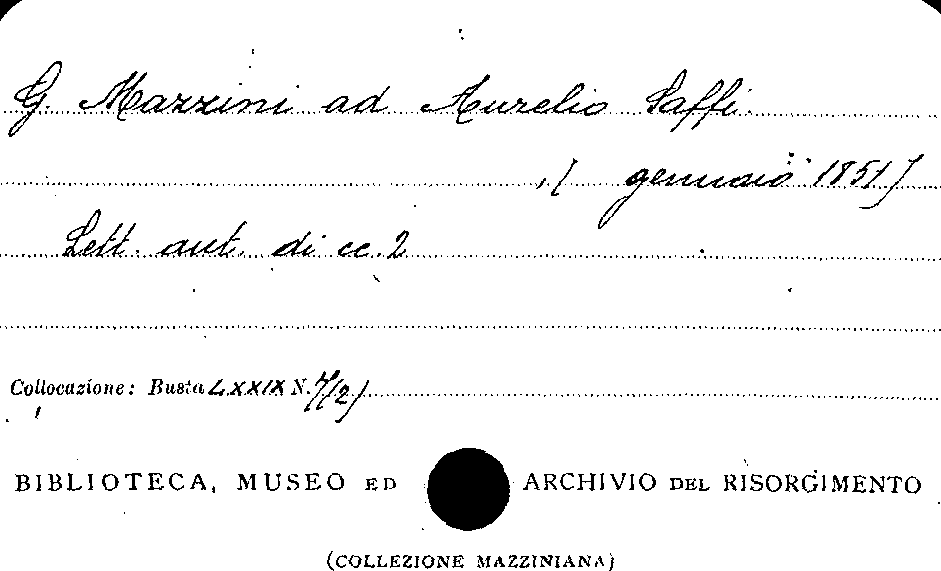 G. Mazzini ad Aurelio Saffi.
, [ gennaio 1851]
Lett. aut. di cc. 2
Collocazione: Busta LXXIX N.
BIBLIOTECA, MUSEO ED ARCHIVIO DEL RISORGIMENTO
(COLLEZIONE MAZZINIANA)